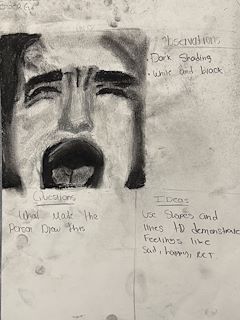 Observations
• Dark Shading
• White and black
Questions
What Made the
Person Draw this
Ideas
Use Shapes and
lines to demonstrate
Feelings like
Sad, happy, ect